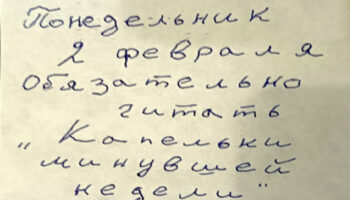 Понедельник
2 февраля
Обязательно
читать
„Капельки
минувшей
недели"